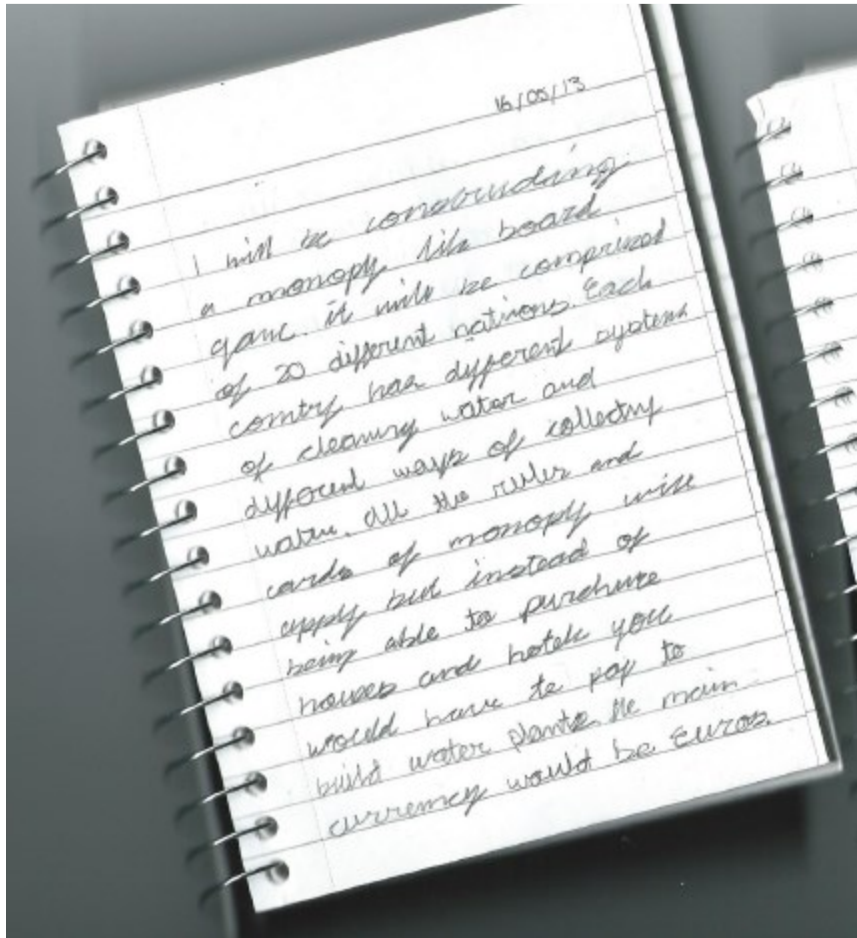 16/05/13
I will be constructing
a monoply like board
game. it will be comprized
of 20 different nations. Each
contry has different systems
of cleaning water and
different ways of collecting
water. All the rules and
cards of monoply will
apply but instead of
being able to purchase
houses and hotels you
would have to pay to
build water plants. The main
currency would be Euros.